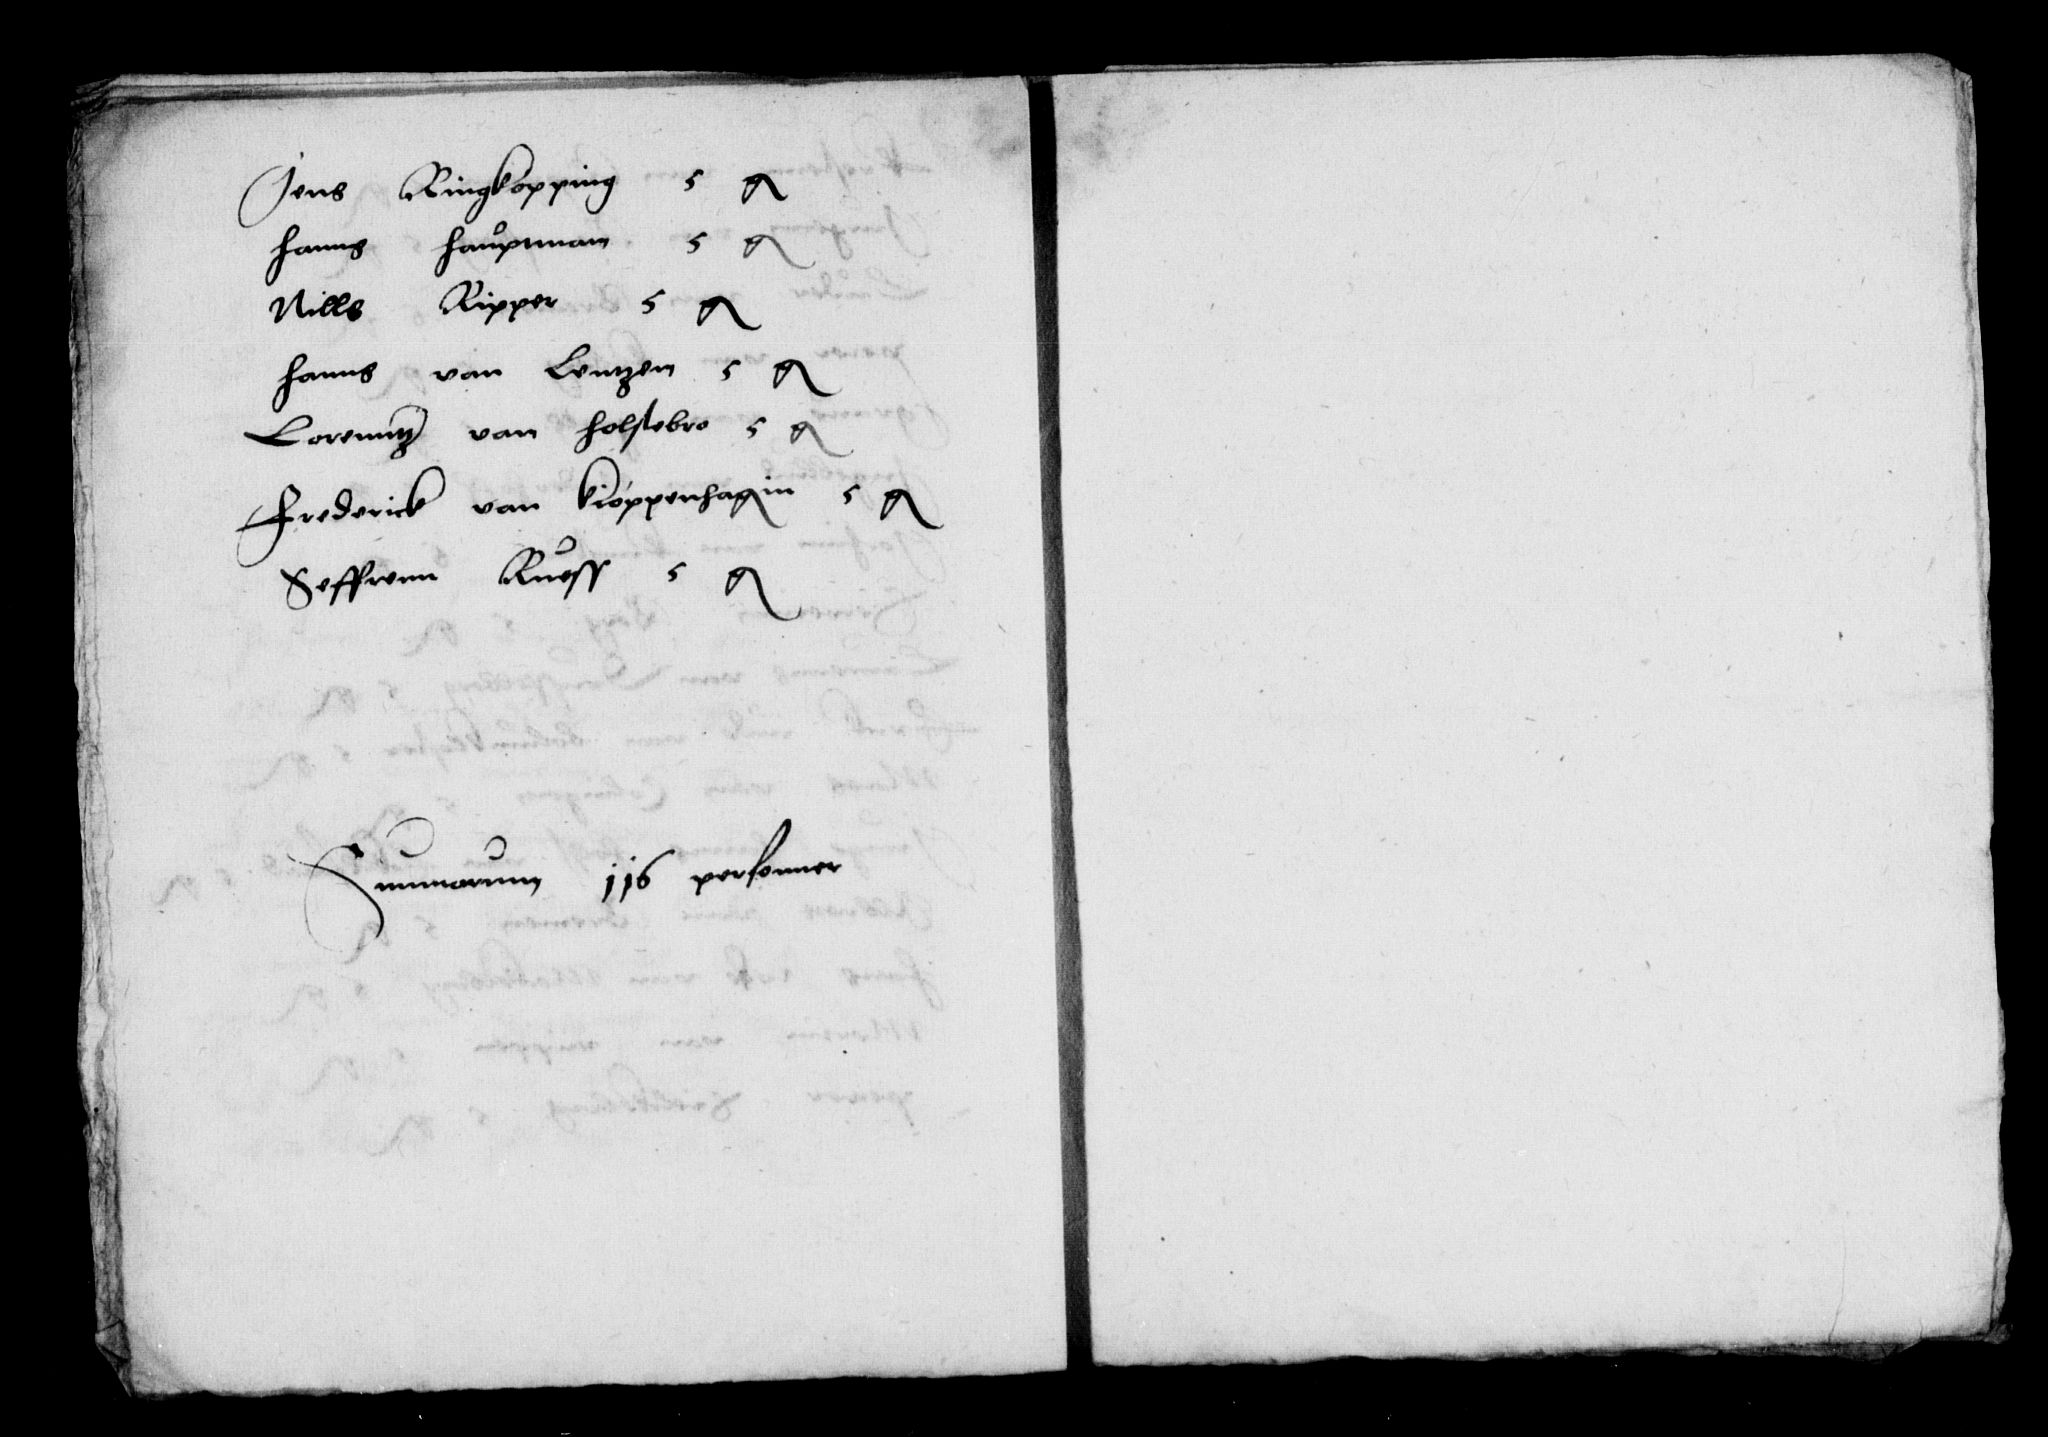 Jens Ringkopping 5 g
hanns hauptman 5 g
Nills Ripper 5 g
hanns van Lentzen 5 g
Lorenntz van holstebro 5 g
Frederick van kioppenhagin 5 g
Seffrenn Ruess 5 g
Summarum 116 personner